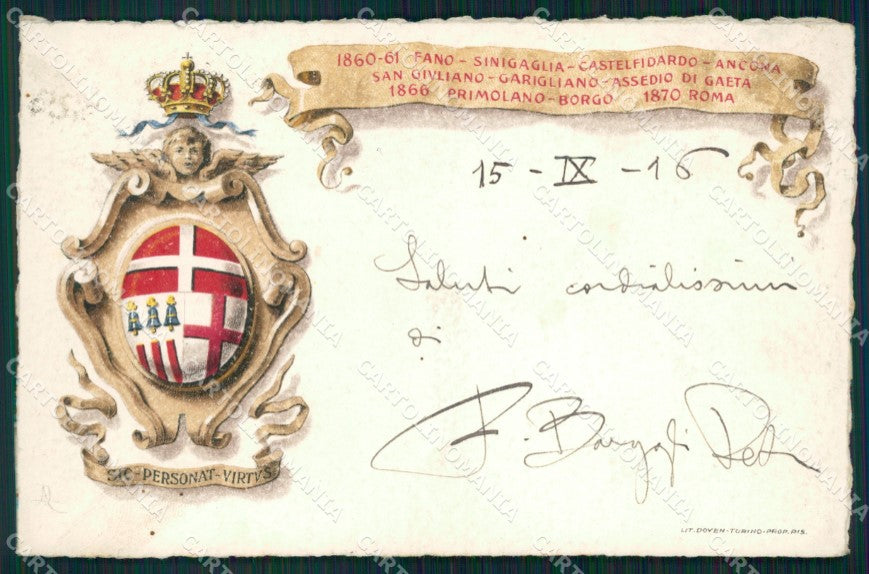 1860-61 FANO - SINIGAGLIA - CASTELFIDARDO - ANCONA
SAN GIVLIANO - GARIGLIANO - ASSEDIO DI GAETA
1866 PRIMOLANO - BORGO 1870 ROMA
15 - IX - 16
Saluti cordialissimi
di
F. Bargagli Petr
SIC - PERSONAT - VIRTVS
LIT. DOYEN - TORINO - PROP. RIS.
CARTOLINOMANIA